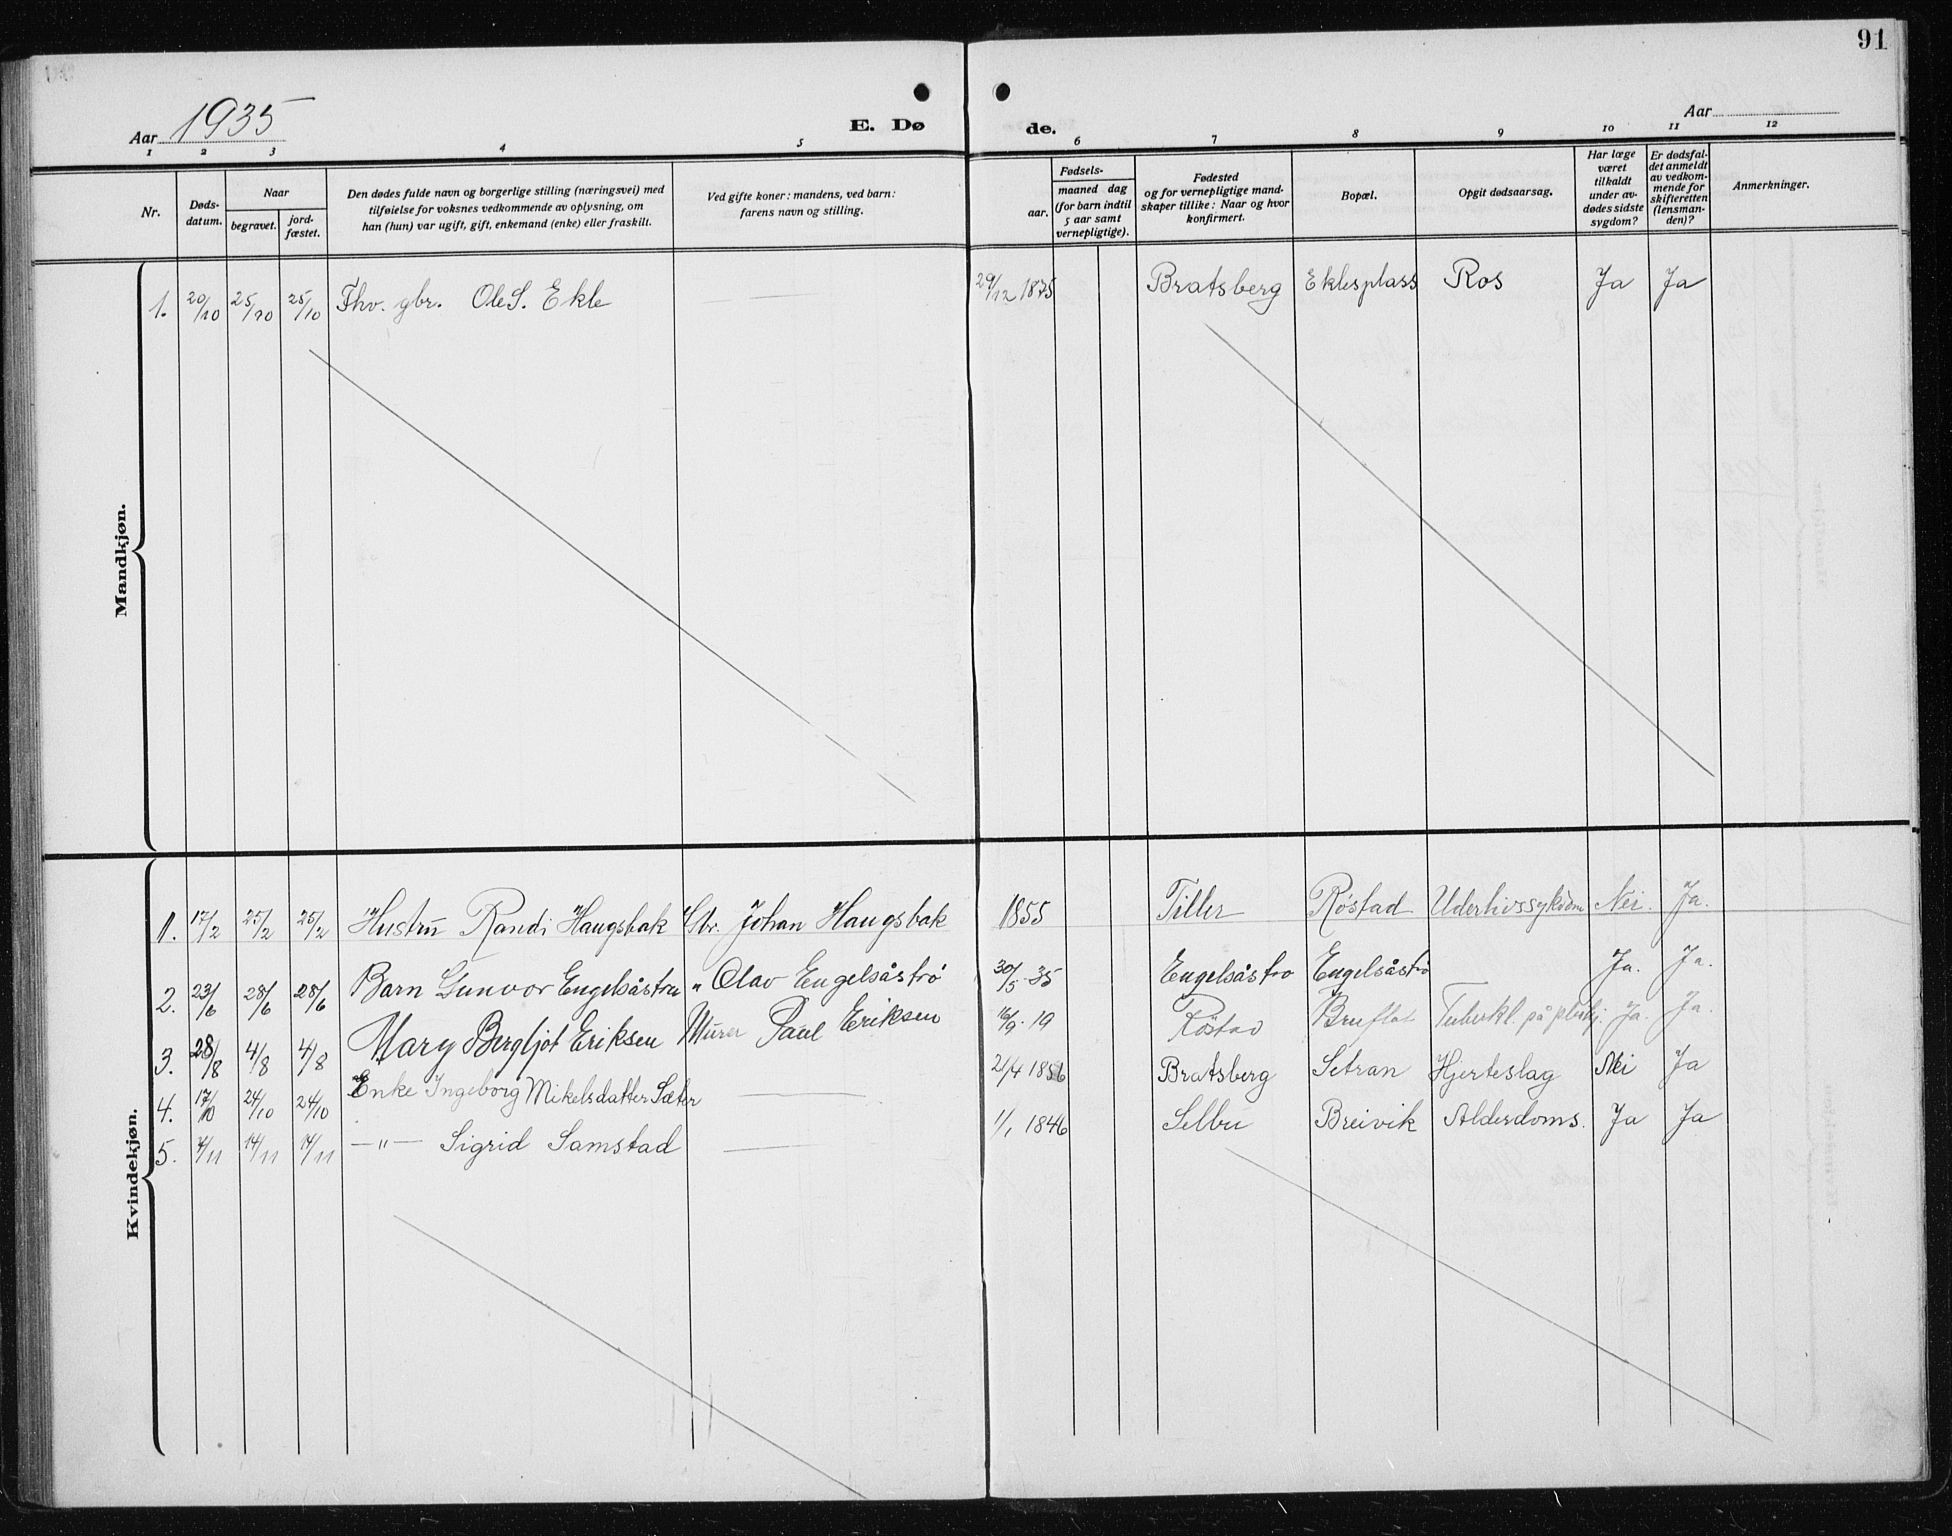 91
Aar 1935
E. Dø
de.
Aar
1 2 3 4 5 6 7 8 9 10 11 12
Nr.
Døds-
datum.
Naar
begravet.
jord-
fæstet.
Den dødes fulde navn og borgerlige stilling (næringsvei) med
tilføielse for voksnes vedkommende av oplysning, om
han (hun) var ugift, gift, enkemand (enke) eller fraskilt.
Ved gifte koner: mandens, ved barn:
farens navn og stilling.
Fødsels-
aar.
maaned dag
(for barn indtil
5 aar samt
vernepligtige).
Fødested
og for vernepligtige mand-
skaper tillike: Naar og hvor
konfirmert.
Bopæl.
Opgit dødsaarsag.
Har læge
været
tilkaldt
under av-
dødes sidste
sygdom?
Er dødsfal-
det anmeldt
av vedkom-
mende for
skifteretten
(lensman-
den)?
Anmerkninger.
Mandkjøn.
1. 20/10 25/10 25/10 Fhv. gbr. Ole S. Ekle 29/12 1875 Bratsberg Eklesplass Ros Ja Ja
Kvindekjøn.
1. 17/2 25/2 25/2 Hustru Randi Haugsbak Gbr. Johan Haugsbak 1855 Tiller Röstad Underlivssykdom Nei. Ja.
2. 23/6 28/6 28/6 Barn Gunvor Engelsåstrø " Olav Engelsåstrø 30/5-35 Engelsåstrø Engelsåstrø Ja. Ja.
3. 28/8 4/8 4/8 Mary Bergljot Eriksen Murer Paul Eriksen 16/9-19 Röstad Tuberkl. Ja. Ja.
4. 17/10 24/10 24/10 Enke Ingeborg Mikelsdatter Sæter 21/4 1856 Bratsberg Setran Hjerteslag Nei Ja
5. 7/11 14/11 14/11 —"— Sigrid Samstad 1/1 1846 Selbu Breivik Alderdoms. Ja Ja